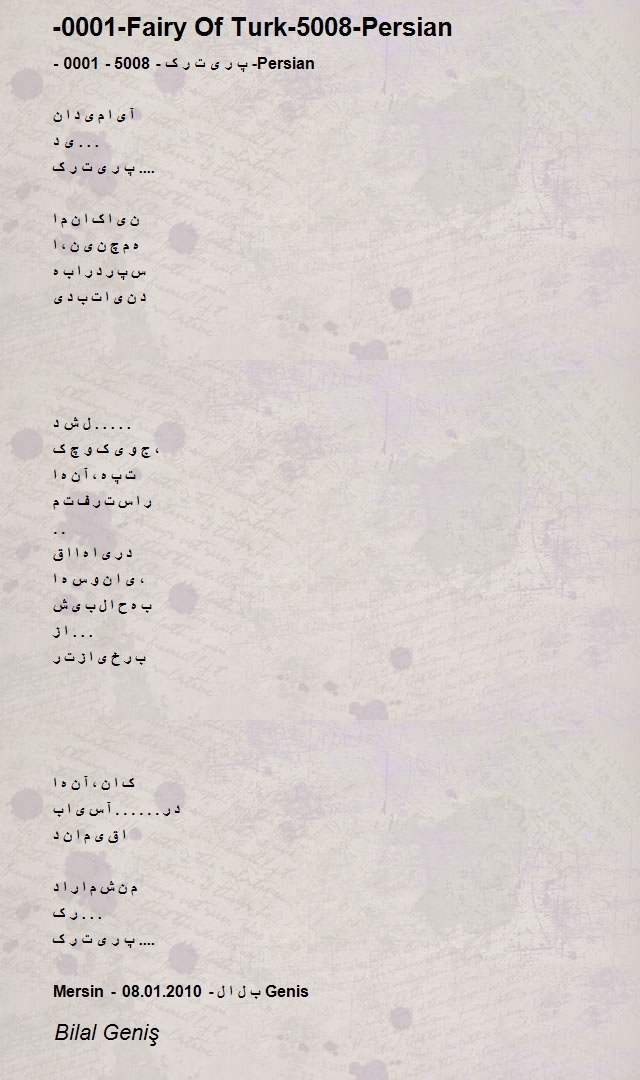 -0001-Fairy Of Turk-5008-Persian
- 0001 - 5008 - پ ر ی ت ر ک -Persian
آ ی ا م ی د ا ن
ی د . . .
پ ر ی ت ر ک ....
ن ی ا ک ا ن م ا
ه م چ ن ی ن ، ا
س پ ر د ر ا ب ه
د ن ی ا ت ب د ی
ل ش د . . . . .
ج و ی ک و چ ک ،
ت پ ه ، آ ن ه ا
ر ا س ت ر ف ت م
. .
د ر ی ا ه ا ا ق
ی ا ن و س ه ا ،
ب ه ح ا ل ب ی ش
ا ز . . .
ب ر خ ی ا ز ت ر
ک ا ن ، آ ن ه ا
د ر . . . . . . آ س ی ا ب
ا ق ی م ا ن د
م ن ش م ا ر ا د
ر ک . . .
پ ر ی ت ر ک ....
Mersin - 08.01.2010 - ب ل ا ل Genis
Bilal Geniş